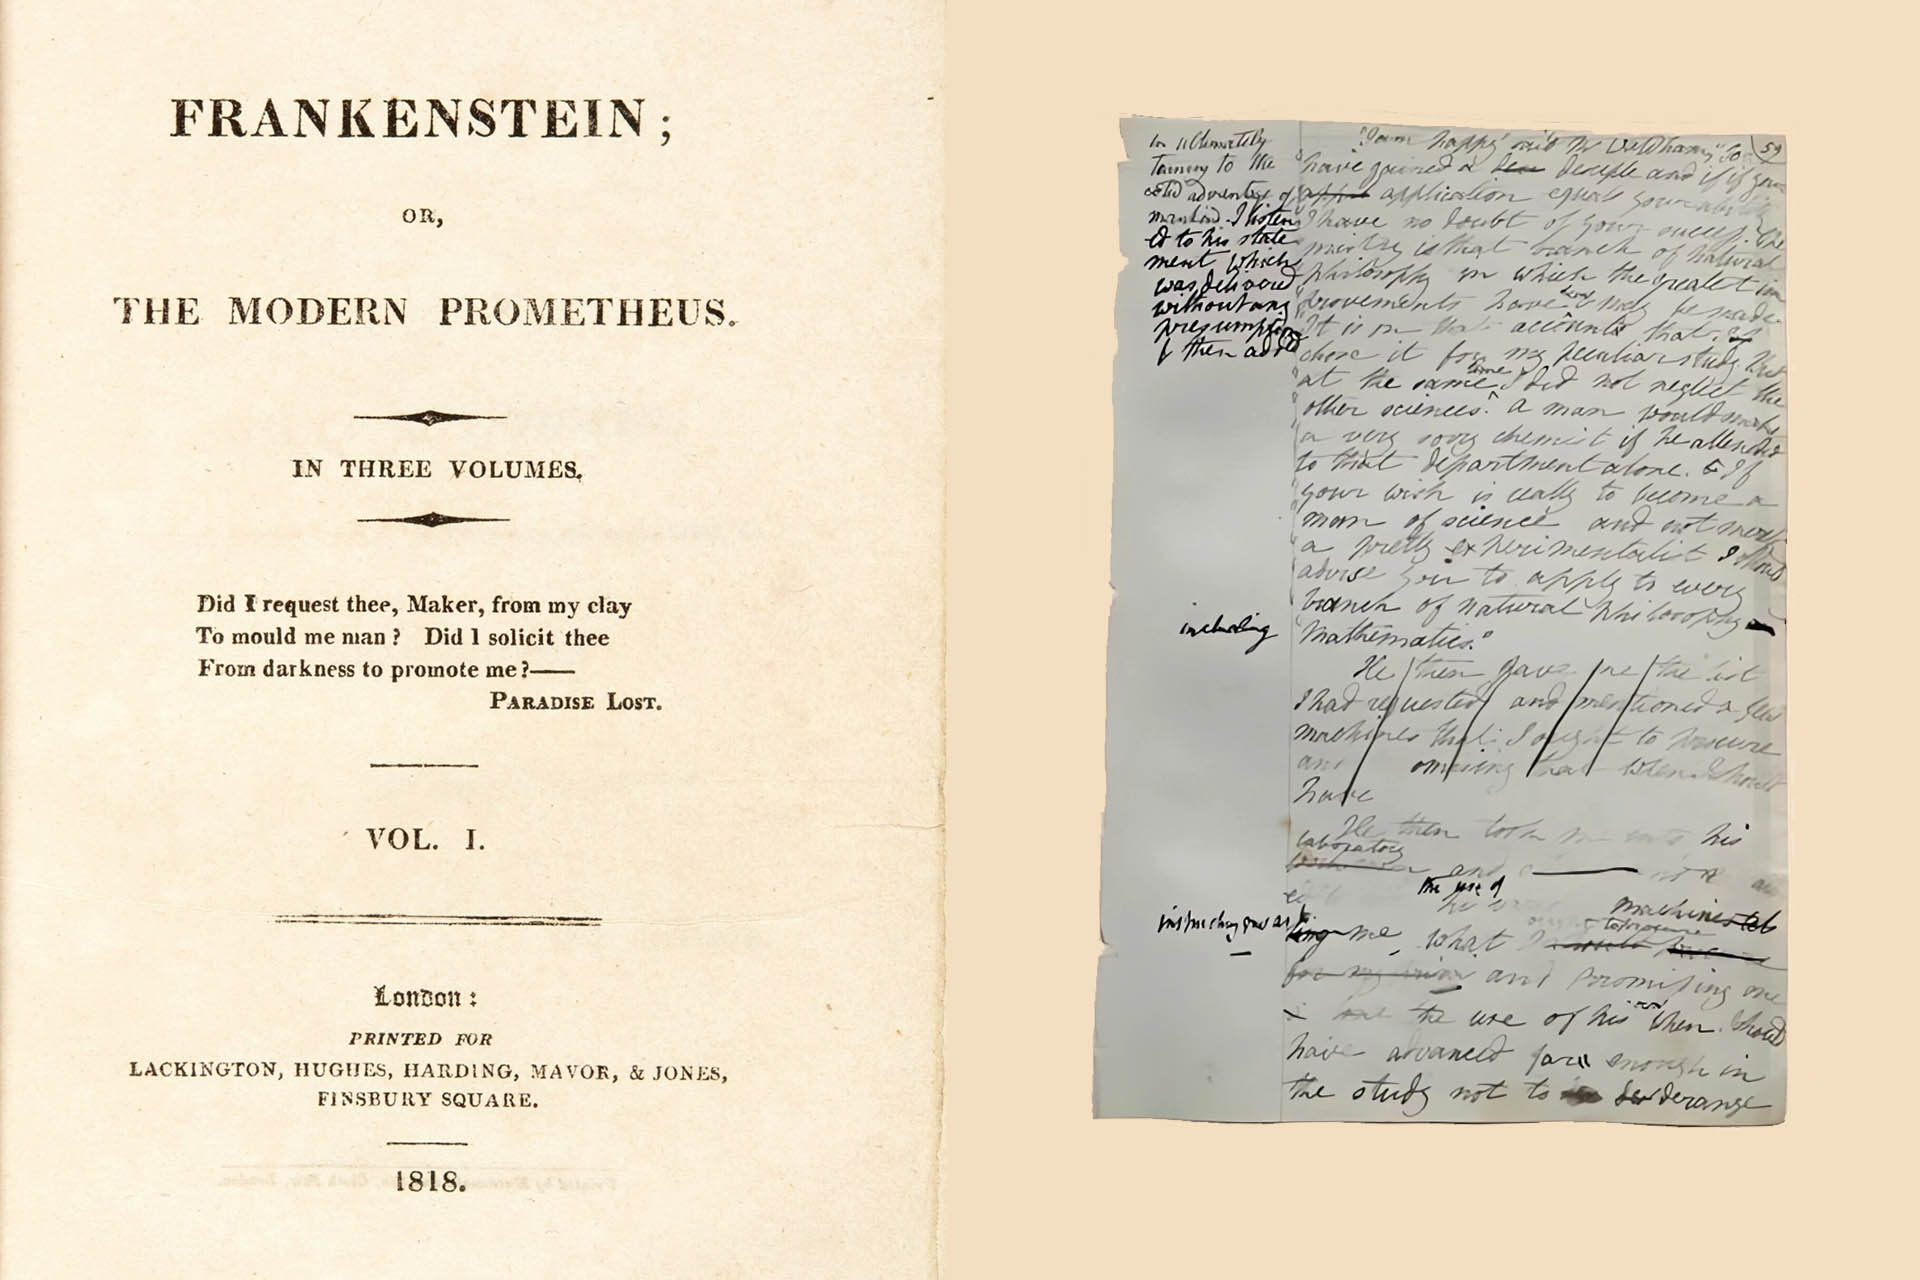 FRANKENSTEIN;
OR,
THE MODERN PROMETHEUS.
IN THREE VOLUMES.
Did I request thee, Maker, from my clay
To mould me man? Did I solicit thee
From darkness to promote me?——
PARADISE LOST.
VOL. I.
London:
PRINTED FOR
LACKINGTON, HUGHES, HARDING, MAVOR, & JONES,
FINSBURY SQUARE.
1818.
59
to the
mankind. I listen
ed to his state
ment which
was delivered
without any
presumption
& then added
"I am happy" said
have gained a disciple and if your
application equals your ability
I have no doubt of your success. Che
mistry is that branch of natural
philosophy in which the greatest im
provements have been & may be made
It is on that account that I
chose it for my peculiar study but
at the same time I did not neglect the
other sciences. A man would make
a very sorry chemist if he attended
to that department alone. If
your wish is really to become a
man of science and not merely
a petty experimentalist I should
advise you to apply to every
branch of natural philosophy
including
Mathematics."
He then gave me the list
I had requested and mentioned a few
machines that I ought to procure
and that when I should
have
He then took me into his
laboratory and
the use of
machines
me, what
to procure
and promising me
the use of his own when I should
have advanced far enough in
the study not to derange